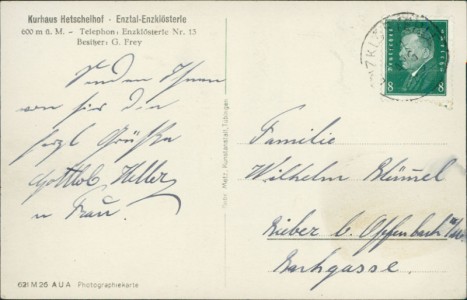 Kurhaus Hetschelhof - Enztal-Enzklösterle
600 m ü. M. – Telephon: Enzklösterle Nr. 13
Besitzer: G. Frey
Senden Ihnen
von hier die
herzl Grüße
Gottlob Keller
u Frau.
Gebr. Metz, Kunstanstalt, Tübingen
621 M 25 A U A Photographiekarte
Deutsches Reich
8 8
Familie
Wilhelm Blümel
Bieber b. Offenbach a/M.
Bachgasse.